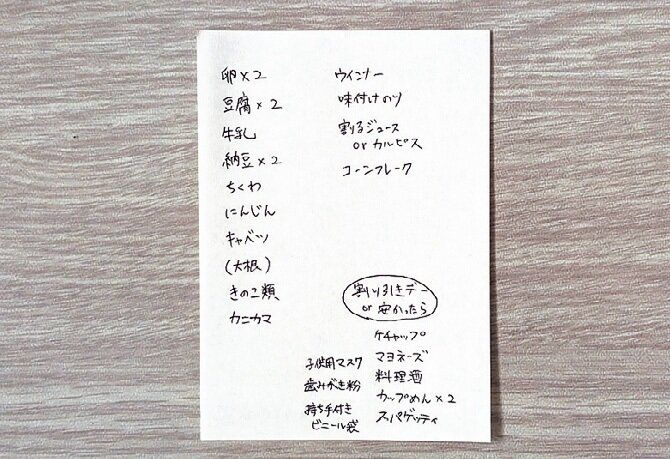 卵×2
豆腐×2
牛乳
納豆×2
ちくわ
にんじん
キャベツ
(大根)
きのこ類
カニカマ
ウインナー
味付けのり
割るジュース
or カルピス
コーンフレーク
割り引きデー
or 安かったら
ケチャップ
マヨネーズ
料理酒
カップめん×2
スパゲッティ
子供用マスク
歯みがき粉
持ち手付き
ビニール袋